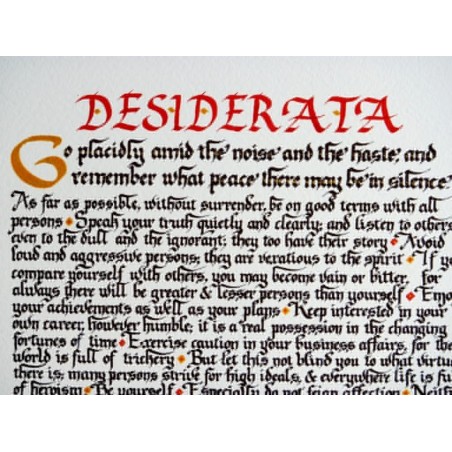 DESIDERATA
Go placidly amid the noise and the haste, and
remember what peace there may be in silence.
As far as possible, without surrender, be on good terms with all
persons • Speak your truth quietly and clearly; and listen to others
even to the dull and the ignorant; they too have their story • Avoid
loud and aggressive persons; they are vexatious to the spirit • If y
compare yourself with others, you may become vain or bitter, for
always there will be greater & lesser persons than yourself • Enjo
your achievements as well as your plans • Keep interested in your
own career, however humble; it is a real possession in the changing
fortunes of time • Exercise caution in your business affairs, for the
world is full of trichery • But let this not blind you to what virtue
there is; many persons strive for high ideals, & everywhere life is fu
of heroism • Be yourself • Especially do not feign affection • Neith